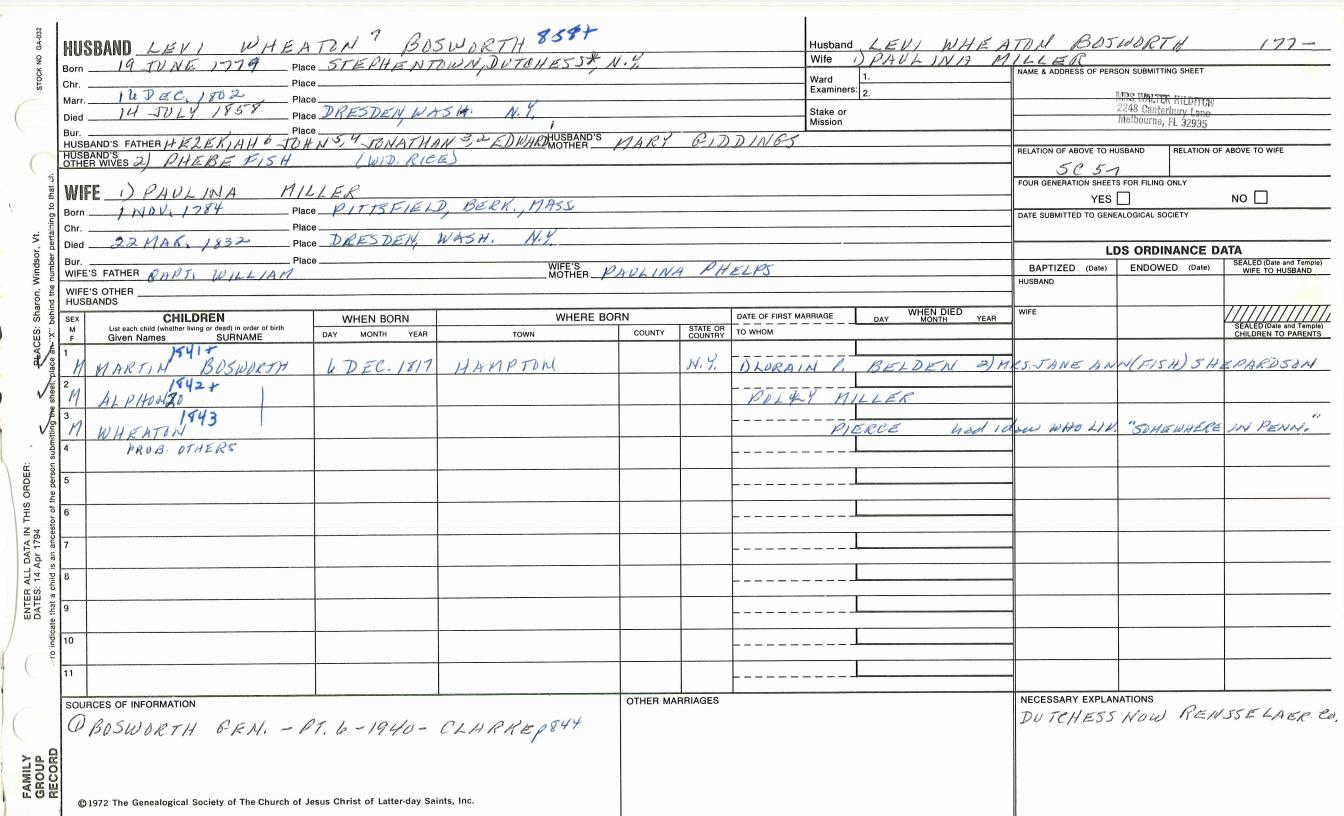 STOCK NO GA-032
HUSBAND LEVI WHEATON 7 BOSWORTH 858+
Born 19 JUNE 1779 Place STEPHENTOWN, DUTCHESS*, N.Y.
Chr. Place
Marr. 16 DEC. 1802 Place
Died 14 JULY 1858 Place DRESDEN, WASH. N.Y.
Bur. Place
HUSBAND'S FATHER HEZEKIAH 6 JOHN 5,4 JONATHAN 3,2 EDWARD 1 HUSBAND'S MOTHER MARY GIDDINGS
HUSBAND'S OTHER WIVES 2) PHEBE FISH (WID. RICE)
WIFE 1) PAULINA MILLER
Born 1 NOV. 1784 Place PITTSFIELD, BERK., MASS
Chr. Place
Died 22 MAR. 1832 Place DRESDEN, WASH. N.Y.
Bur. Place
WIFE'S FATHER CAPT. WILLIAM WIFE'S MOTHER PAULINA PHELPS
WIFE'S OTHER HUSBANDS
Husband LEVI WHEATON BOSWORTH 177-
Wife 1) PAULINA MILLER
Ward Examiners: 1.
2.
Stake or Mission
NAME & ADDRESS OF PERSON SUBMITTING SHEET
MRS. WALTER HILDITCH
2248 Canterbury Lane
Melbourne, FL 32935
RELATION OF ABOVE TO HUSBAND RELATION OF ABOVE TO WIFE
5C 5
FOUR GENERATION SHEETS FOR FILING ONLY
YES NO
DATE SUBMITTED TO GENEALOGICAL SOCIETY
LDS ORDINANCE DATA
BAPTIZED (Date) ENDOWED (Date) SEALED (Date and Temple) WIFE TO HUSBAND
HUSBAND
WIFE
SEALED (Date and Temple) CHILDREN TO PARENTS
SEX M F CHILDREN WHEN BORN WHERE BORN DATE OF FIRST MARRIAGE WHEN DIED
List each child (whether living or dead) in order of birth
Given Names SURNAME DAY MONTH YEAR TOWN COUNTY STATE OR COUNTRY TO WHOM DAY MONTH YEAR
1 1841+
M MARTIN BOSWORTH 6 DEC. 1817 HAMPTON N.Y. DLORAIN P. BELDEN 2) MRS. JANE ANN (FISH) SHEPARDSON
2 1842+
M ALPHONZO POLLY MILLER
3 1843
M WHEATON PIERCE had WHO LIV. "SOMEWHERE IN PENN."
4 PROB. OTHERS
5
6
7
8
9
10
11
SOURCES OF INFORMATION
① BOSWORTH GEN. - PT. 6 - 1940 - CLARKE p844
OTHER MARRIAGES
NECESSARY EXPLANATIONS
DUTCHESS NOW RENSSELAER Co.
©1972 The Genealogical Society of The Church of Jesus Christ of Latter-day Saints, Inc.
FAMILY GROUP RECORD
ENTER ALL DATA IN THIS ORDER:
DATES: 14 Apr 1794
PLACES: Sharon, Windsor, Vt.
To indicate that a child is an ancestor of the person submitting the sheet, place an "X" behind the number pertaining to that